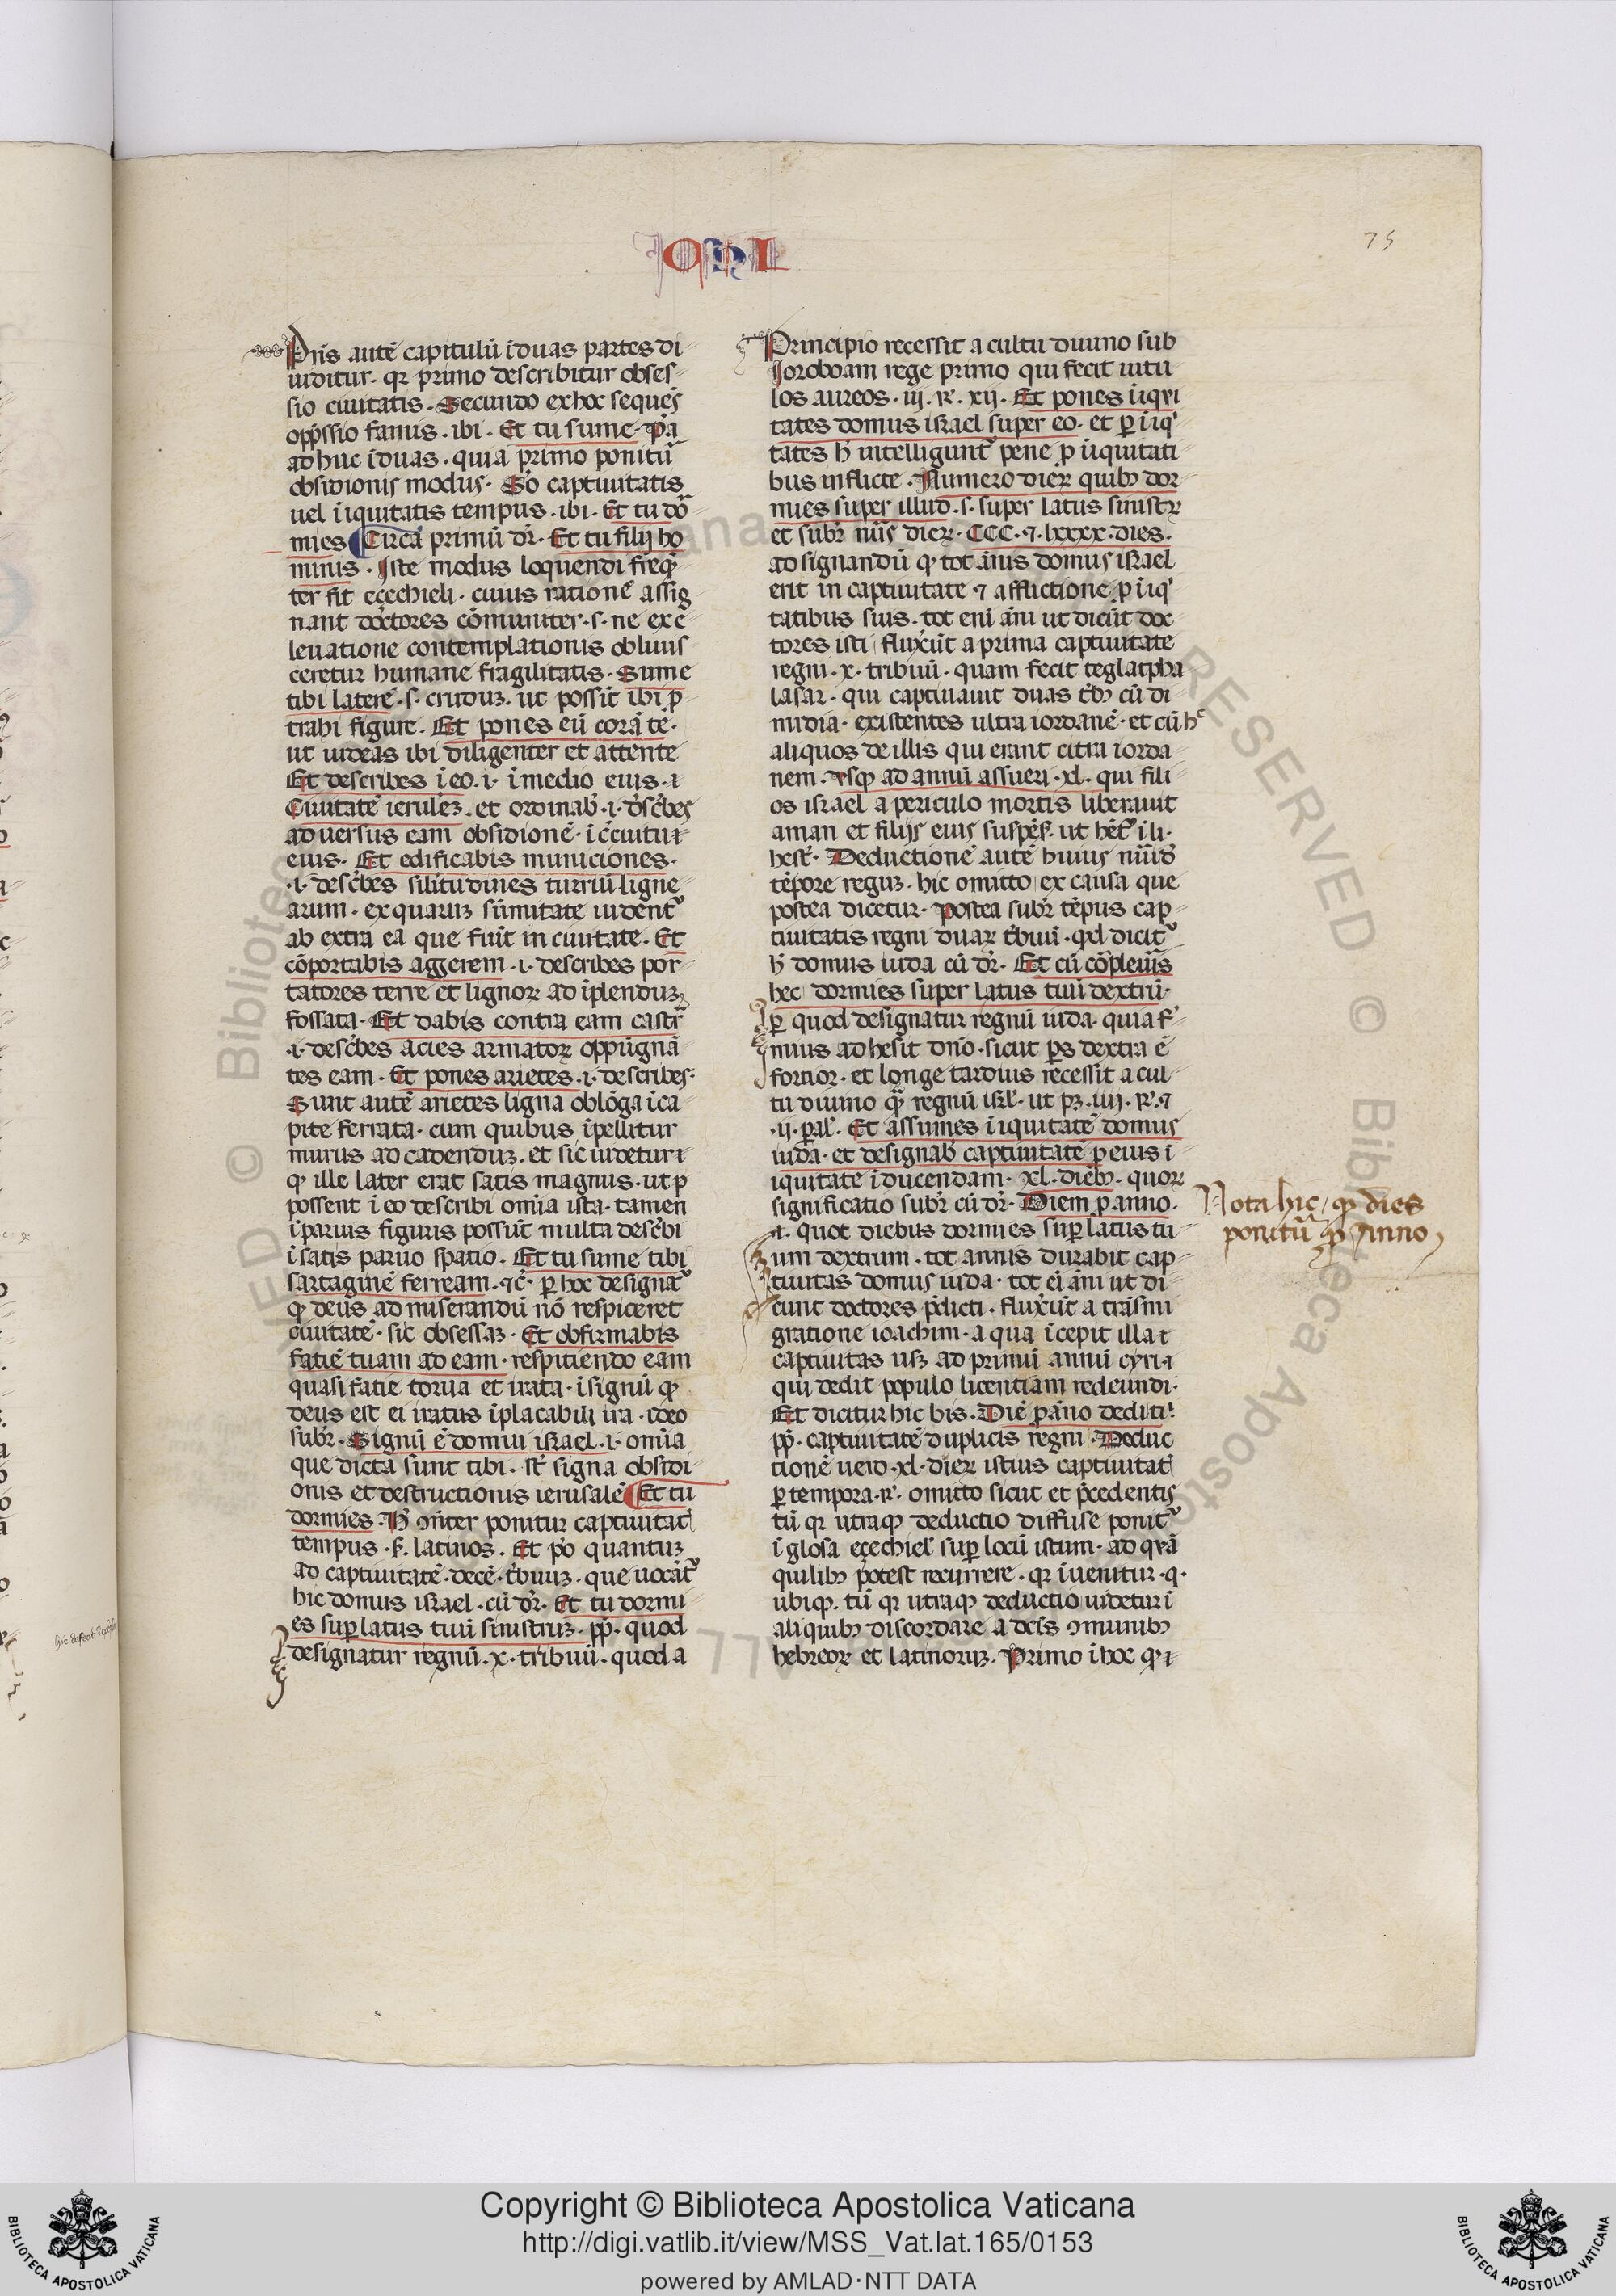 75
Pn̄s autē capitulū i duas partes di
uiditur. qr̄ primo describitur obses
sio ciuitatis. Secundo ex hoc sequēs
opp̄ssio famis. ibi. Et tu sume. p̄a
ad huc i duas. quia primo ponitur̄
obsidionis modus. So captiuitatis
uel iiquitatis tempus. ibi. Et tu do
mies Circa primū dr̄. Et tu filij ho
minis. Iste modus loquendi freq̄
ter fit eçechieli. cuius rationē assig
nant doctores cōmuniter. s. ne ex e
leuatione contemplationis obliuis
ceretur humane fragilitatis. Sume
tibi laterē. s. cruduꝫ. ut possit ibi p̄
trahi figure. Et pones eū corā te.
ut uideas ibi diligenter et attente
Et describes i eo. i. i medio eius. i
Ciuitatē ierlēꝫ. et ordinab̄. i. dsc̄bes
aduersus eam obsidionē. i c̄cuitu i
eius. Et edificabis municiones.
.i. desc̄bes silitudines turriū ligne
arum. ex quaruꝫ sūmitate uident᷑
ab extra ea que fiūt in ciuitate. Et
cōportabis aggerem. i. describes por
tatores terre et lignoꝝ ad iplenduꝫ
fossata. Et dabis contra eam castr̄
.i. desc̄bes acies armatoꝝ oppūgnā
tes eam. Et pones arietes. i. describes.
Sunt autē arietes ligna oblōga i ca
pite ferrata. cum quibus ipellitur
murus ad cadenduꝫ. et sic uidetur i
ꝙ ille later erat satis magnus. ut p
possent i eo describi omīa ista. tamen
i paruis figuris possūt multa desc̄bi
i satis paruo spatio. Et tu sume tibi
sartaginē ferream. ⁊c̄. ꝑ hoc designat᷑
ꝙ deus ad miserandū nō respiceret
ciuitatē. sic obsessaꝫ. Et obfirmabis
fatiē tuam ad eam. respitiendo eam
quasi fatie torua et irata. i signū ꝙ
deus est ei iratus iplacabili ira. ideo
subr̄. Signū ē domui israel. i. omīa
que dicta sunt tibi. st̄ signa obsidi
onis et destructionis ierusalē Et tu
dormies. H̄ ꝯn̄ter ponitur captiuitat
tempus. s̄. latinos. Et p̄o quantuꝫ
ad captiuitatē. decē. t̄buuꝫ. que uocāt᷑
hic domus israel. cū dr̄. Et tu dormi
es suꝑ latus tuū sinistruꝫ. pp̄. quod
designatur regnū. x. tribuū. quod a
Principio recessit a cultu diuino sub
Ioroboam rege primo qui fecit uitu
los aureos. iij. R̄. xij. Et pones iiqui
tates domus israel super eo. et ꝑ iiq
tates h̄ intelligunt᷑ pene ꝑ iiquitati
bus inflicte. Numero dieꝝ quibꝫ dor
mies super illud. s. super latus sinistꝝ
et subr̄ nūs dieꝝ. CCC. ⁊. lxxxx. dies.
ad signandū ꝙ tot ānis domus israel
erit in captiuitate ⁊ afflictione ꝑ iiq
tatibus suis. tot eni āni ut dicūt doc
tores isti fluxer̄ūt a prima captiuitate
regni. x. tribuū. quam fecit teglatpha
lasar. qui captiuauit duas t̄bꝫ cū di
midia. existentes ultra iordanē. et cū hͨ
aliquos de illis qui erant citra iorda
nem. vsqꝫ ad annū assueri. xl. qui fili
os israel a periculo mortis liberauit
aman et filijs eius suspēs. ut hēt᷑ i li.
hest̄. Deductionē autē huius nūis
tēpore reguꝫ. hic omitto ex causa que
postea dicetur. Postea subr̄ tēpus cap
tiuitatis regni duaꝝ t̄buū. qd̄ dicit᷑
h̄ domus iuda cū dr̄. Et cū cōpleuīs
hec dormies super latus tuū dextrū.
ꝑ quod designatur regnū iuda. quia f
mius adhesit dn̄o. sicut ꝑs dextra ē
fortior. et longe tardius recessit a cul
tu diuino q̄ regnū isrl̄. ut pꝫ. iiij. R̄. ⁊
.ij. paral̄. Et assumes iiquitatē domus
iuda. et designab̄ captiuitatē ꝑ eius i
iquitate iducendam. xl. diebꝫ. quoꝝ
significatio subr̄ cū dr̄. Diem ꝑ anno.
.i. quot diebus dormies suꝑ latus tu
um dextrum. tot annis durabit cap
tiuitas domus iuda. tot ei āni ut di
cunt doctores p̄dicti. fluxer̄ūt a trāsmi
gratione ioachim. a qua icepit illa i
captiuitas usꝫ ad primū annū cyri i
qui dedit populo licentiam redeundi.
Et dicitur hic bis. Diē ꝑ āno dedi ti.
pp̄. captiuitatē duplicis regni. Deduc
tionē uero. xl. dieꝝ istius captiuitat
ꝑ tempora. R̄. omitto sicut et p̄cedentis
tū qr̄ utraqꝫ deductio diffuse ponit᷑
i glosa eçechiel̄ suꝑ locū istum. ad quā
quilibꝫ potest recurrere. qr̄ iuenitur. q.
ubiqꝫ. tū qr̄ utraqꝫ deductio uidetur i
aliquibꝫ discordare a dc̄is ꝯmunibꝫ
hebreoꝝ et latinoruꝫ. Primo i hoc ꝙ i
Nota hic, ꝙ dies
ponitur̄ ꝓ Anno,
Copyright © Biblioteca Apostolica Vaticana
http://digi.vatlib.it/view/MSS_Vat.lat.165/0153
powered by AMLAD·NTT DATA
BIBLIOTECA APOSTOLICA VATICANA
BIBLIOTECA APOSTOLICA VATICANA